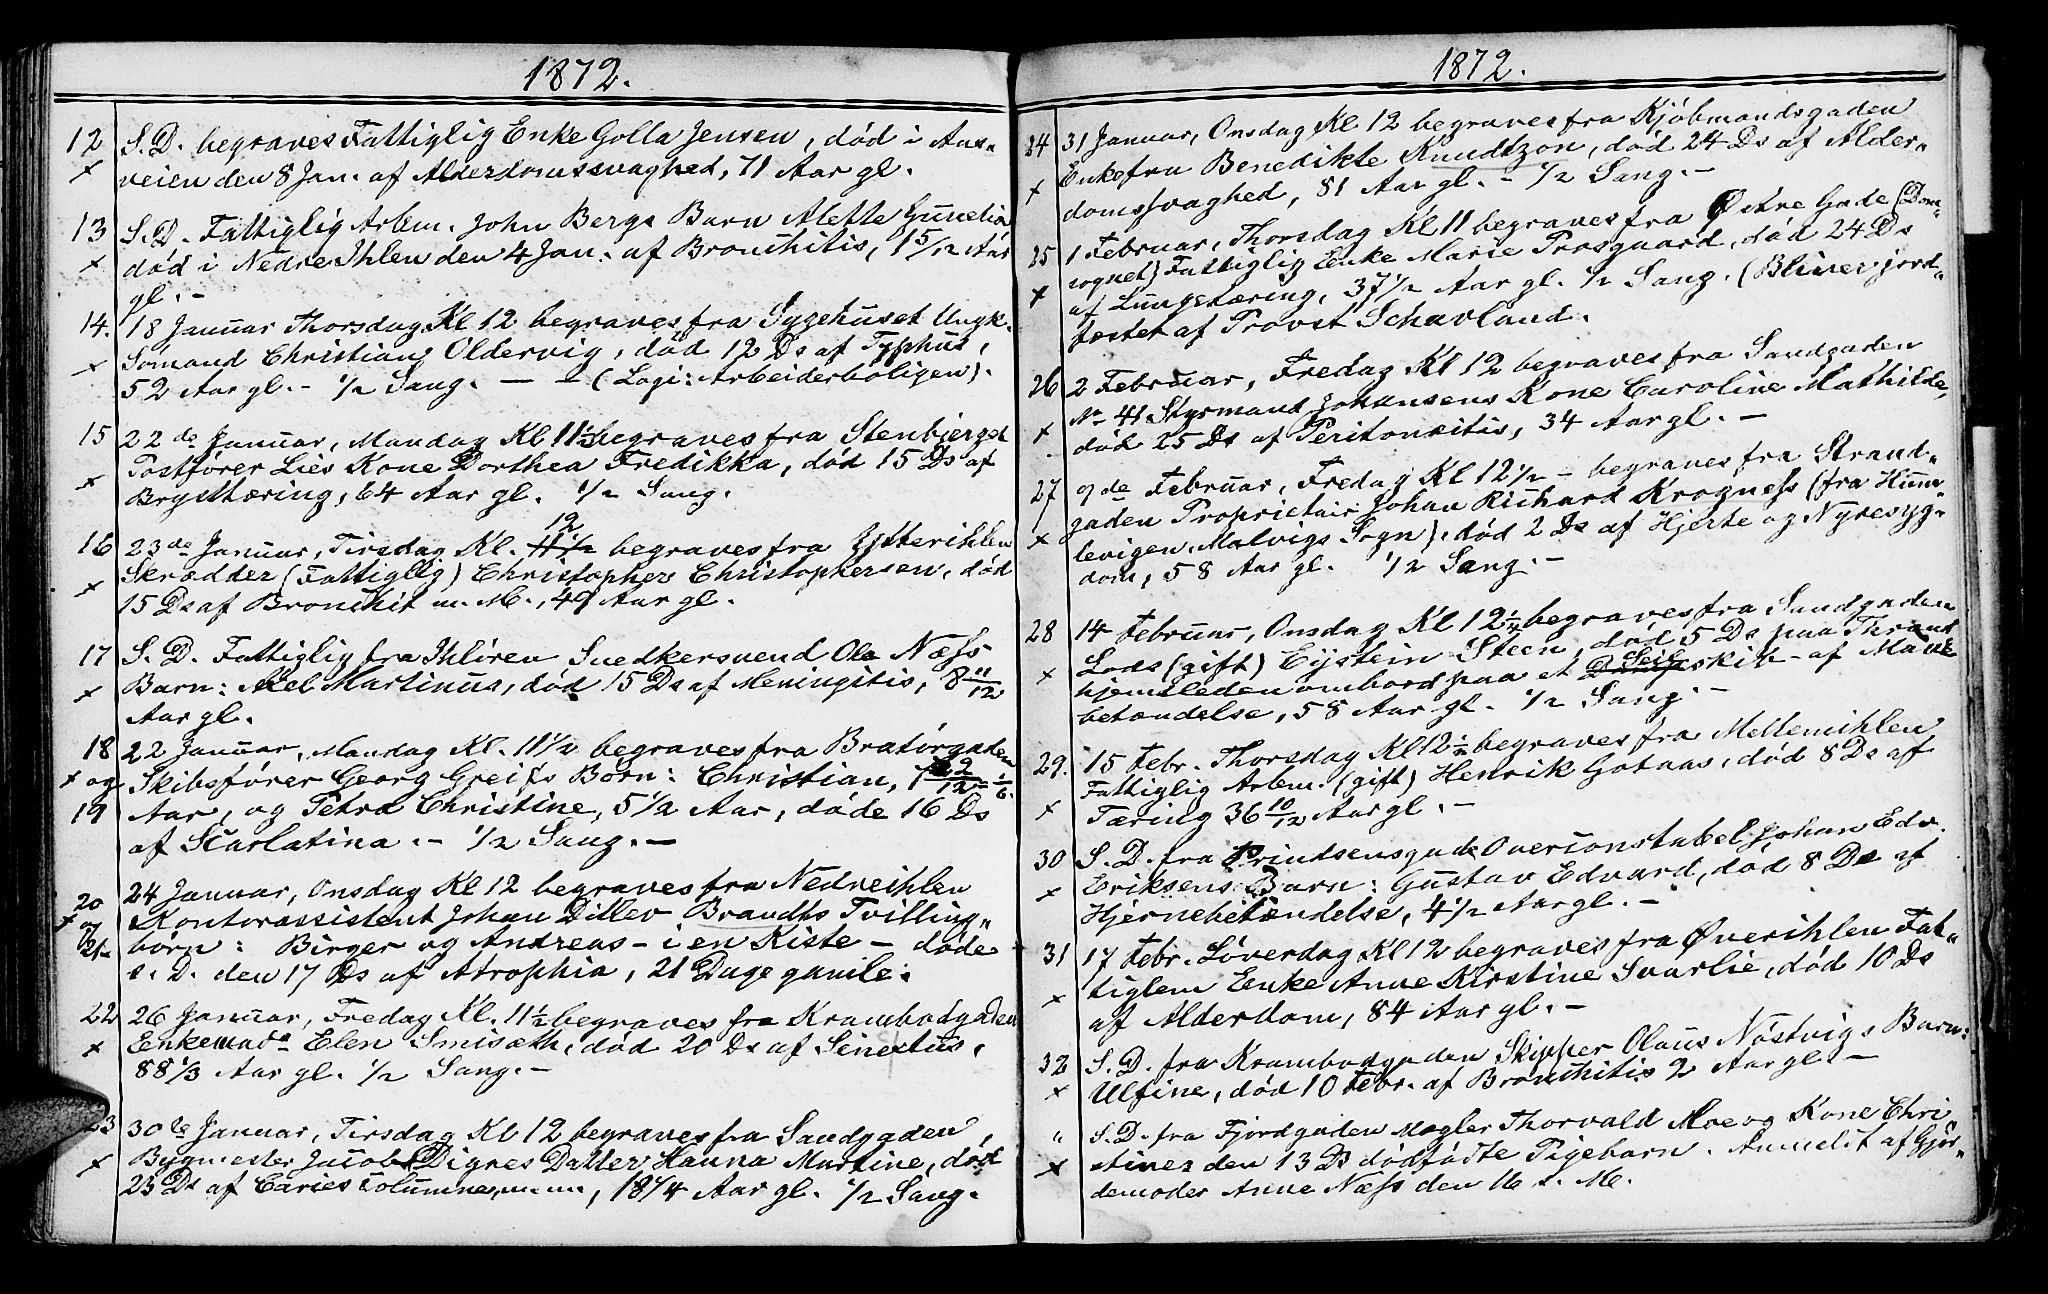 1872.
12 S. D. begraves Fattiglig Enke Golla Jensen, død i Aas-
× veien den 8 Jan. af Alderdomssvaghed, 71 Aar gl.
13 S. D. Fattiglig Arbm. John Bergs Barn Alette Gunelia
× død i Nedre Ihlen den 4 Jan. af Bronchitis, 1 5/12 Aar
gl. –
14. 18 Januar Thorsdag Kl 12 begraves fra Sygehuset Ungk.
× Sømand Christian Oldervig, død 12 Ds af Typhus,
52 Aar gl. – 1/2 Sang. – – (Logi: Arbeiderboligen).
15 22de Januar, Mandag Kl 11 1/2 begraves fra Stenbjerget
× Postfører Lies Kone Dorthea Fredikka, død 15 Ds af
Brysttæring, 64 Aar gl. 1/2 Sang.
12
16 23de Januar, Tirsdag Kl. 11 1/2 begraves fra Ytterihlen
× Skrædder (Fattiglig) Christopher Christophersen, død
15 Ds af Bronchit m. M., 49 Aar gl.
17 S. D. Fattiglig fra Ihløren Snedkersvend Ole Næss
× Barn: Axel Martinus, død 15 Ds af Meningitis, 8 11/12
Aar gl.
18 22 Januar, Mandag Kl. 11 1/2 begraves fra Bratørgaden
× og Skibsfører Georg Greifs Børn: Christian, 2/12 = 1/6
19 Aar, og Petra Christine, 5 1/2 Aar, døde 16 Ds
af Scarlatina. – 1/2 Sang. –
20 24 Januar, Onsdag Kl 12 begraves fra Nedreihlen
× og Kontorassistent Johan Ditlev Brandts Tvilling-
21 børn: Birger og Andreas – i en Kiste – døde
s. D. den 17 Ds af Atrophia, 21 Dage gamle.
22 26 Januar, Fredag Kl. 11 1/2 begraves fra Krambodgaden
× Enkemada Elen Smisæth, død 20 Ds af Senectus,
88 1/3 Aar gl. 1/2 Sang. –
23 30te Januar, Tirsdag Kl 12 begraves fra Sandgaden,
× Bygmester Jacob Digres Datter Hanna Martine, død
23 Ds af Caries columne, m. m., 18 1/4 Aar gl. 1/2 Sang.
1872.
24 31 Januar, Onsdag Kl 12 begraves fra Kjøbmandsgaden
× Enkefru Benedikte Knudtzon, død 24 Ds af Alder-
domssvaghed, 81 Aar gl. – 1/2 Sang. –
25 1 Februar, Thorsdag Kl 11 begraves fra Østre Gade (Dom-
sognet) Fattiglig Enke Marie Prosgaard, død 24 Ds
× af Lungetæring, 37 1/2 Aar gl. 1/2 Sang. (Bliver jord-
fæstet af Provst Schavland.
26 2 Februar, Fredag Kl 12 begraves fra Sandgaden
No 41 Styrmand Johansens Kone Caroline Mathilde,
× død 25 Ds af Peritonæitis, 34 Aar gl. –
27 9de Februar, Fredag Kl 12 1/2 – begraves fra Strand-
gaden Proprietair Johan Richard Krogness (fra Hum-
× levigen, Malvigs Sogn), død 2 Ds af Hjerte og Nyresyg-
dom, 58 Aar gl. 1/2 Sang. –
28 14 Februar, Onsdag Kl 12 1/4 begraves fra Sandgaden
Lods (gift) Eystein Steen, død 5 Ds paa Thrond
× hjemsleden ombord paa et Seilskib – af Mave
betændelse, 58 Aar gl. 1/2 Sang –
29. 15 Febr. Thorsdag Kl 12 1/2 begraves fra Mellemihlen
Fattiglig Arbm. (gift) Henrik Gotaas, død 8 Ds af
× Tæring 36 10/12 Aar gl. –
30 S. D. fra Prindsensgade Overconstabel Johan Edv.
× Eriksens Barn: Gustav Edvard, død 8 Ds af
Hjernebetændelse, 4 1/2 Aar gl. –
31 17 Febr. Løverdag Kl 12 begraves fra Øverihlen Fat-
× tiglem Enke Anne Kirstine Svarlie, død 10 Ds
af Alderdom, 84 Aar gl. –
32 S. D. fra Krambodgaden Skipper Olaus Nøstvigs Barn:
× Ulfine, død 10 Febr. af Bronchitis 2 Aar gl. –
" S. D. fra Fjordgaden Mægler Thorvald Moe og Kone Chri
× stines den 13 Ds dødfødte Pigebarn. Anmeldt af Gjør-
demoder Anne Næss den 16 s. M.